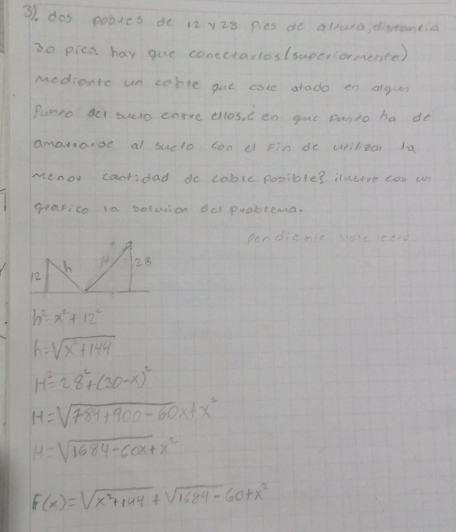 3). dos postes de 12 y 28 pies de altura, distancia
30 pies hay que conectarlos (superiormente)
mediante un cable que este atado en algun
punto del suelo entre ellos, ¿ en que punto ha de
amarrarse al suelo con el fin de utilizar la
menor cantidad de cable posible? ilustre con un
grafico la solucion del problema.
pendiente vale cero
12 h H 28
h²=x²+12²
h=√x²+144
H²=28²+(30-x)²
H=√784+900-60x+x²
H=√1684-60x+x²
F(x)=√x²+144+√1684-60+x²